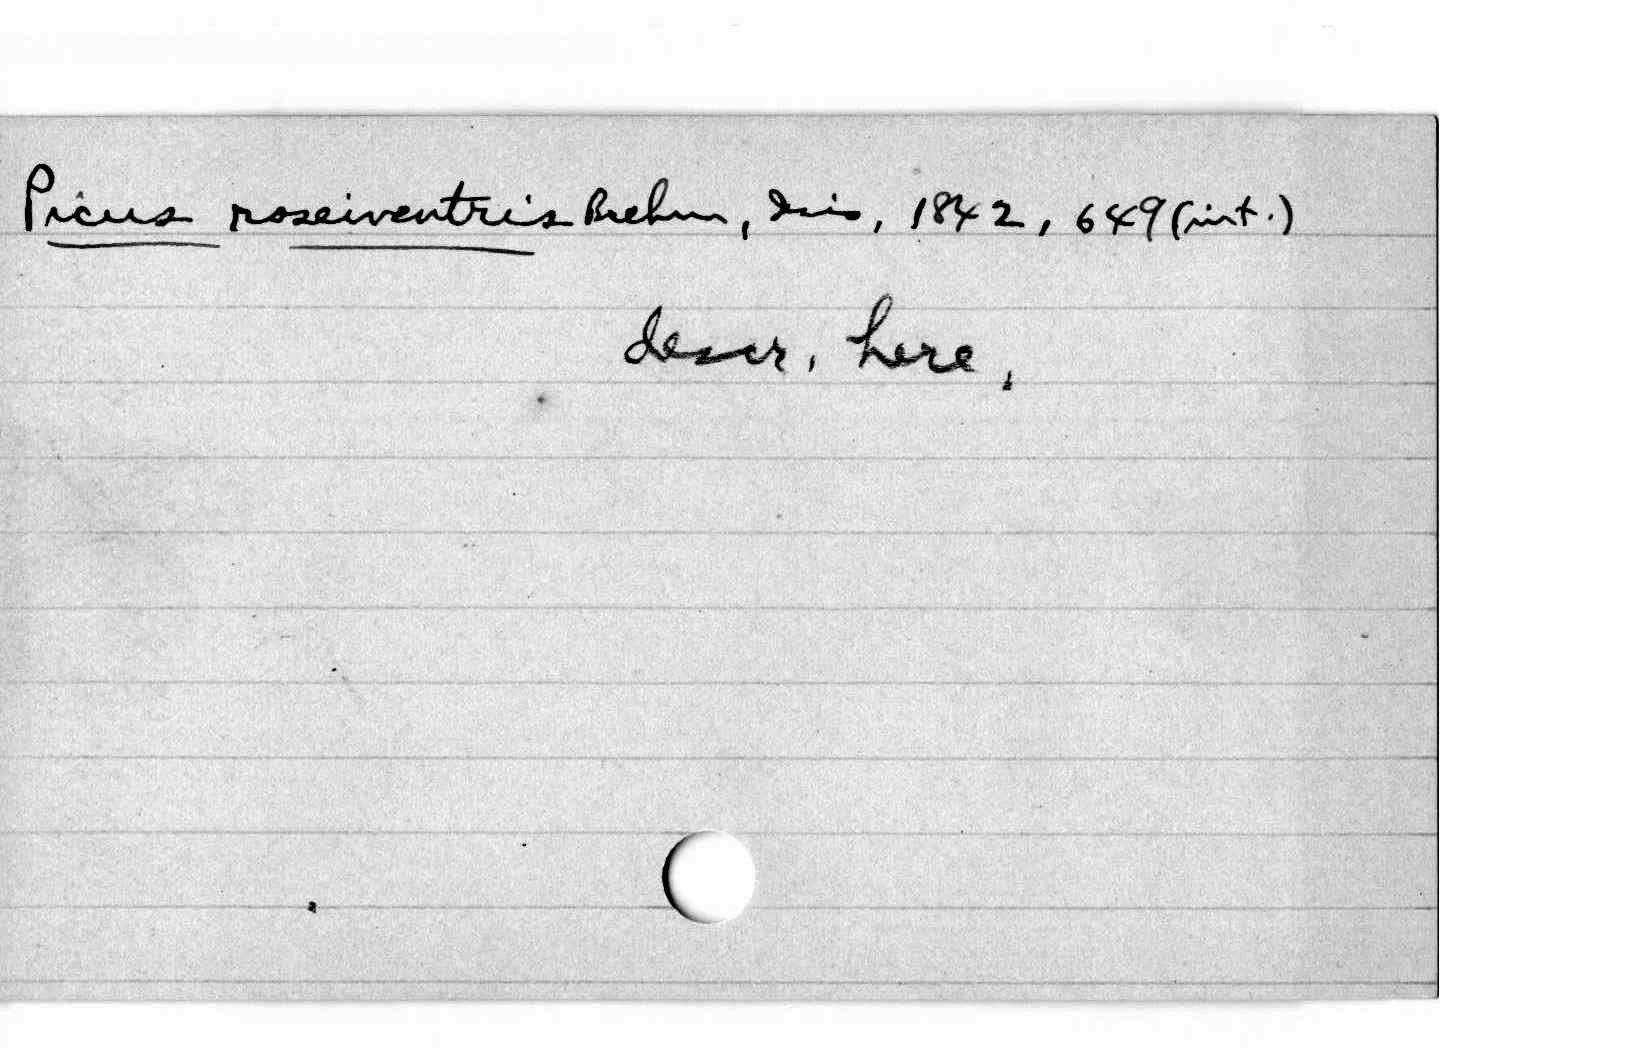 Picus roseiventris Brehm, Isis, 1842, 649 (int.)
descr. here.